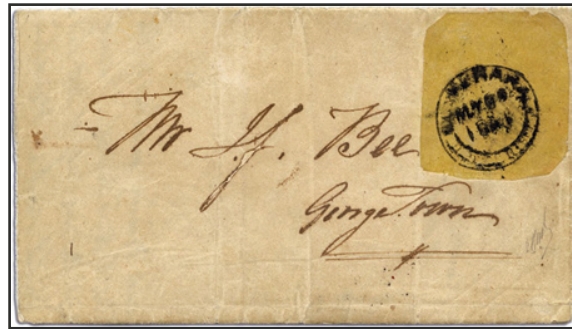 DEMERARA
1851
Mr J.f. Bee
GeorgeTown